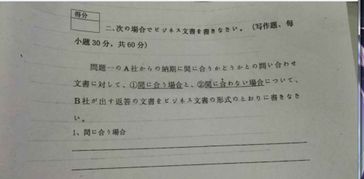 得分
二、次の場合でビジネス文書を書きなさい。（写作题，每
小题30分，共60分）
問題一のA社からの納期に間に合うかどうかとの問い合わせ
文書に対して、①間に合う場合と、②間に合わない場合について、
B社が出す返答の文書をビジネス文書の形式のとおりに書きなさ
い。
1、間に合う場合